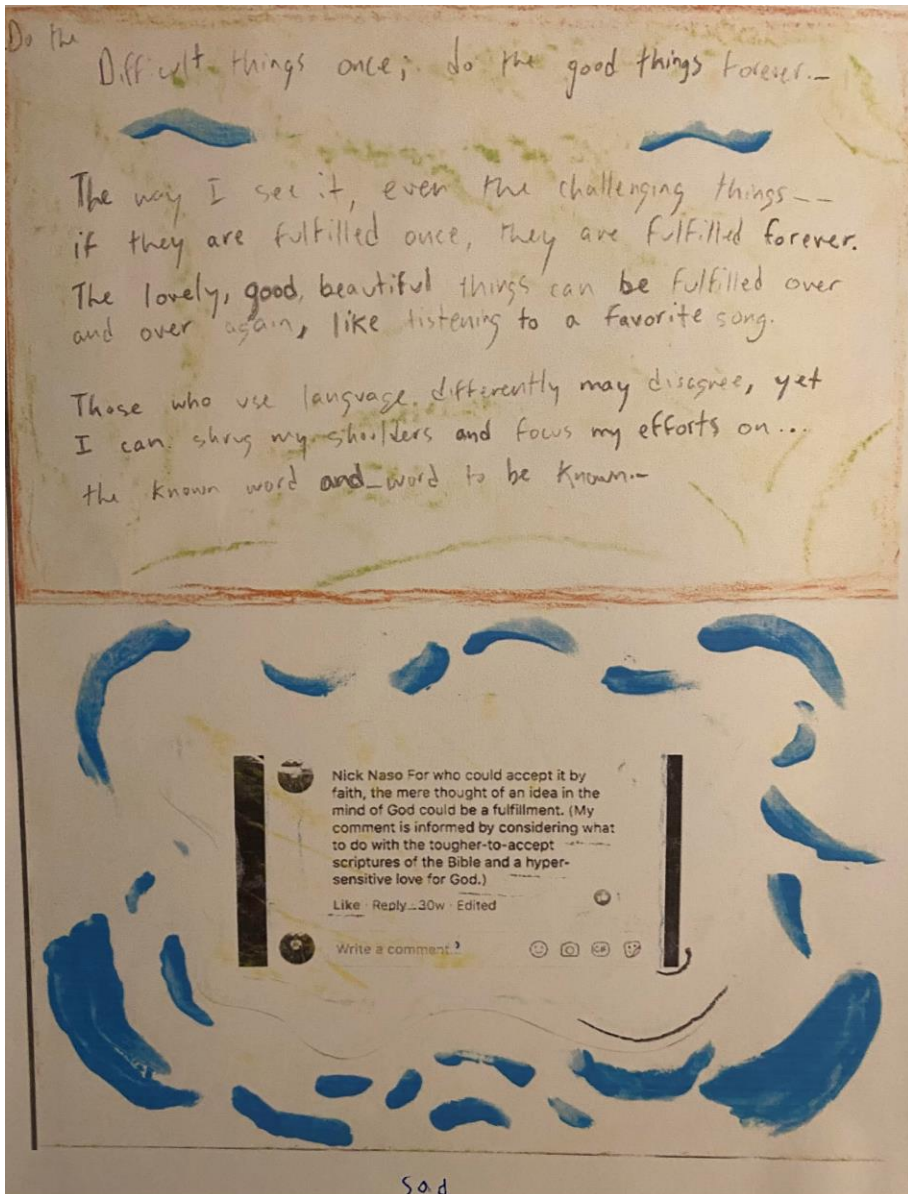 Do the
Difficult things once; do the good things forever._
The way I see it, even the challenging things--
if they are fulfilled once, they are fulfilled forever.
The lovely, good, beautiful things can be fulfilled over
and over again, like listening to a favorite song.
Those who use language differently may disagree, yet
I can shrug my shoulders and focus my efforts on...
the known word and_word to be known.-
Nick Naso For who could accept it by
faith, the mere thought of an idea in the
mind of God could be a fulfillment. (My
comment is informed by considering what
to do with the tougher-to-accept
scriptures of the Bible and a hyper-
sensitive love for God.)
Like · Reply · 30w · Edited
1
Write a comment...
GIF
Sad